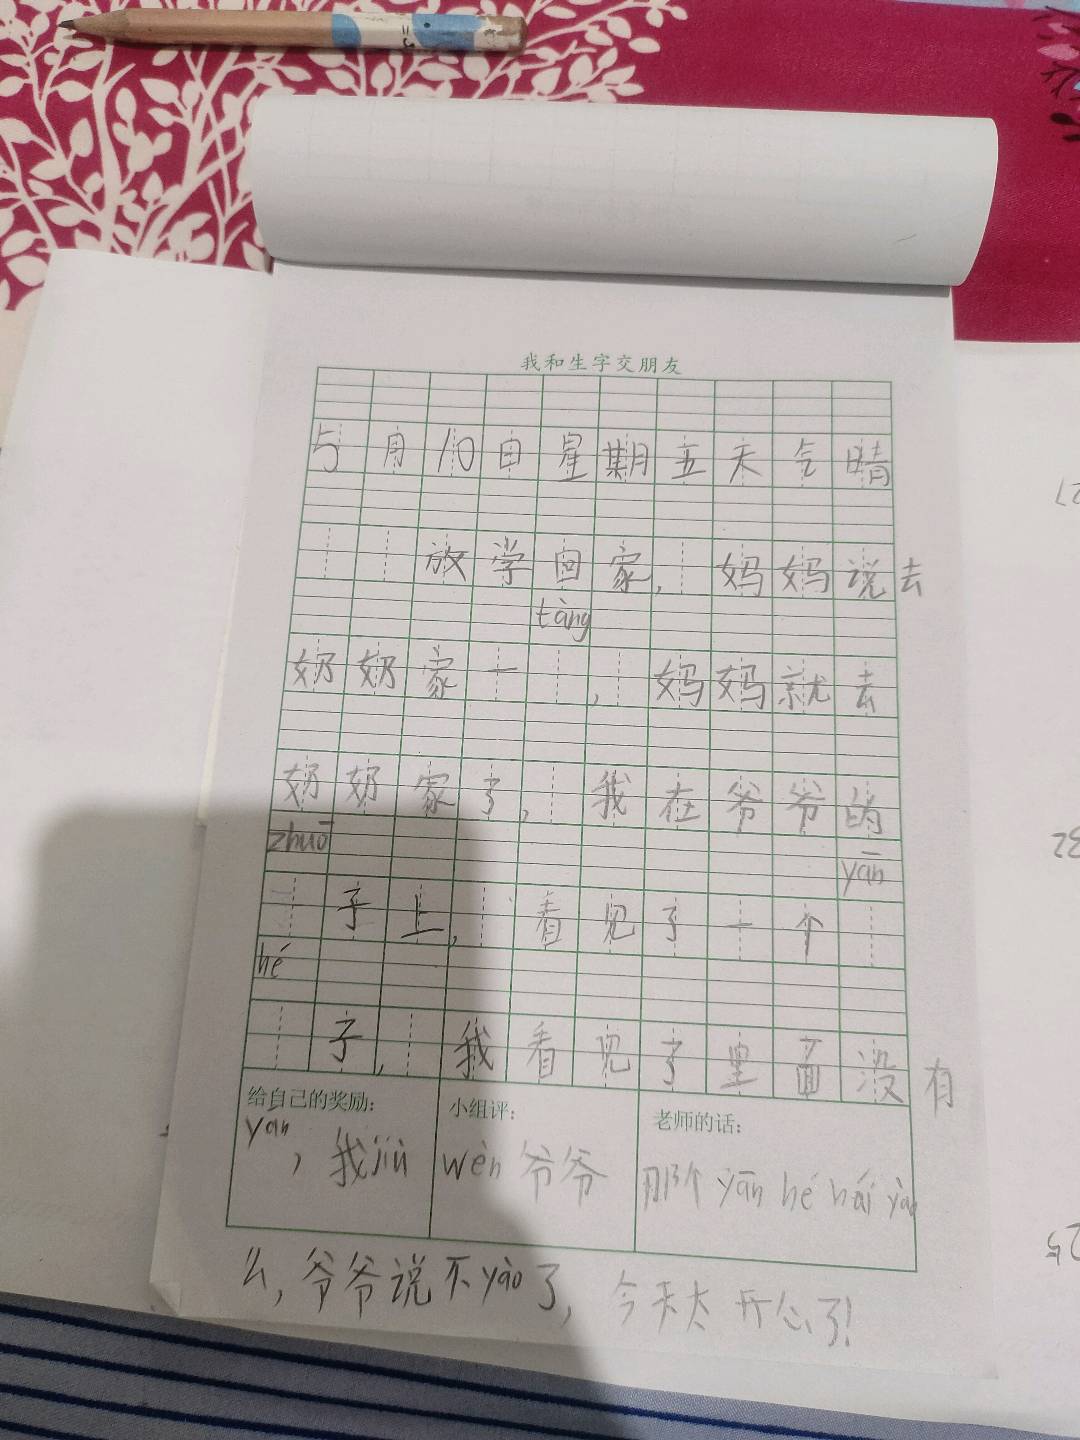 我和生字交朋友
5月10日星期五天气晴
放学回家,妈妈说去
tàng
奶奶家一,妈妈就去
奶奶家了,我在爷爷的
zhuō yān
子上,看见了一个
hé
子,我看见了里面没有
给自己的奖励: 小组评: 老师的话:
yan,我jiù wèn爷爷 那个yān hé hái yào
么,爷爷说不yào了,今天太开心了!